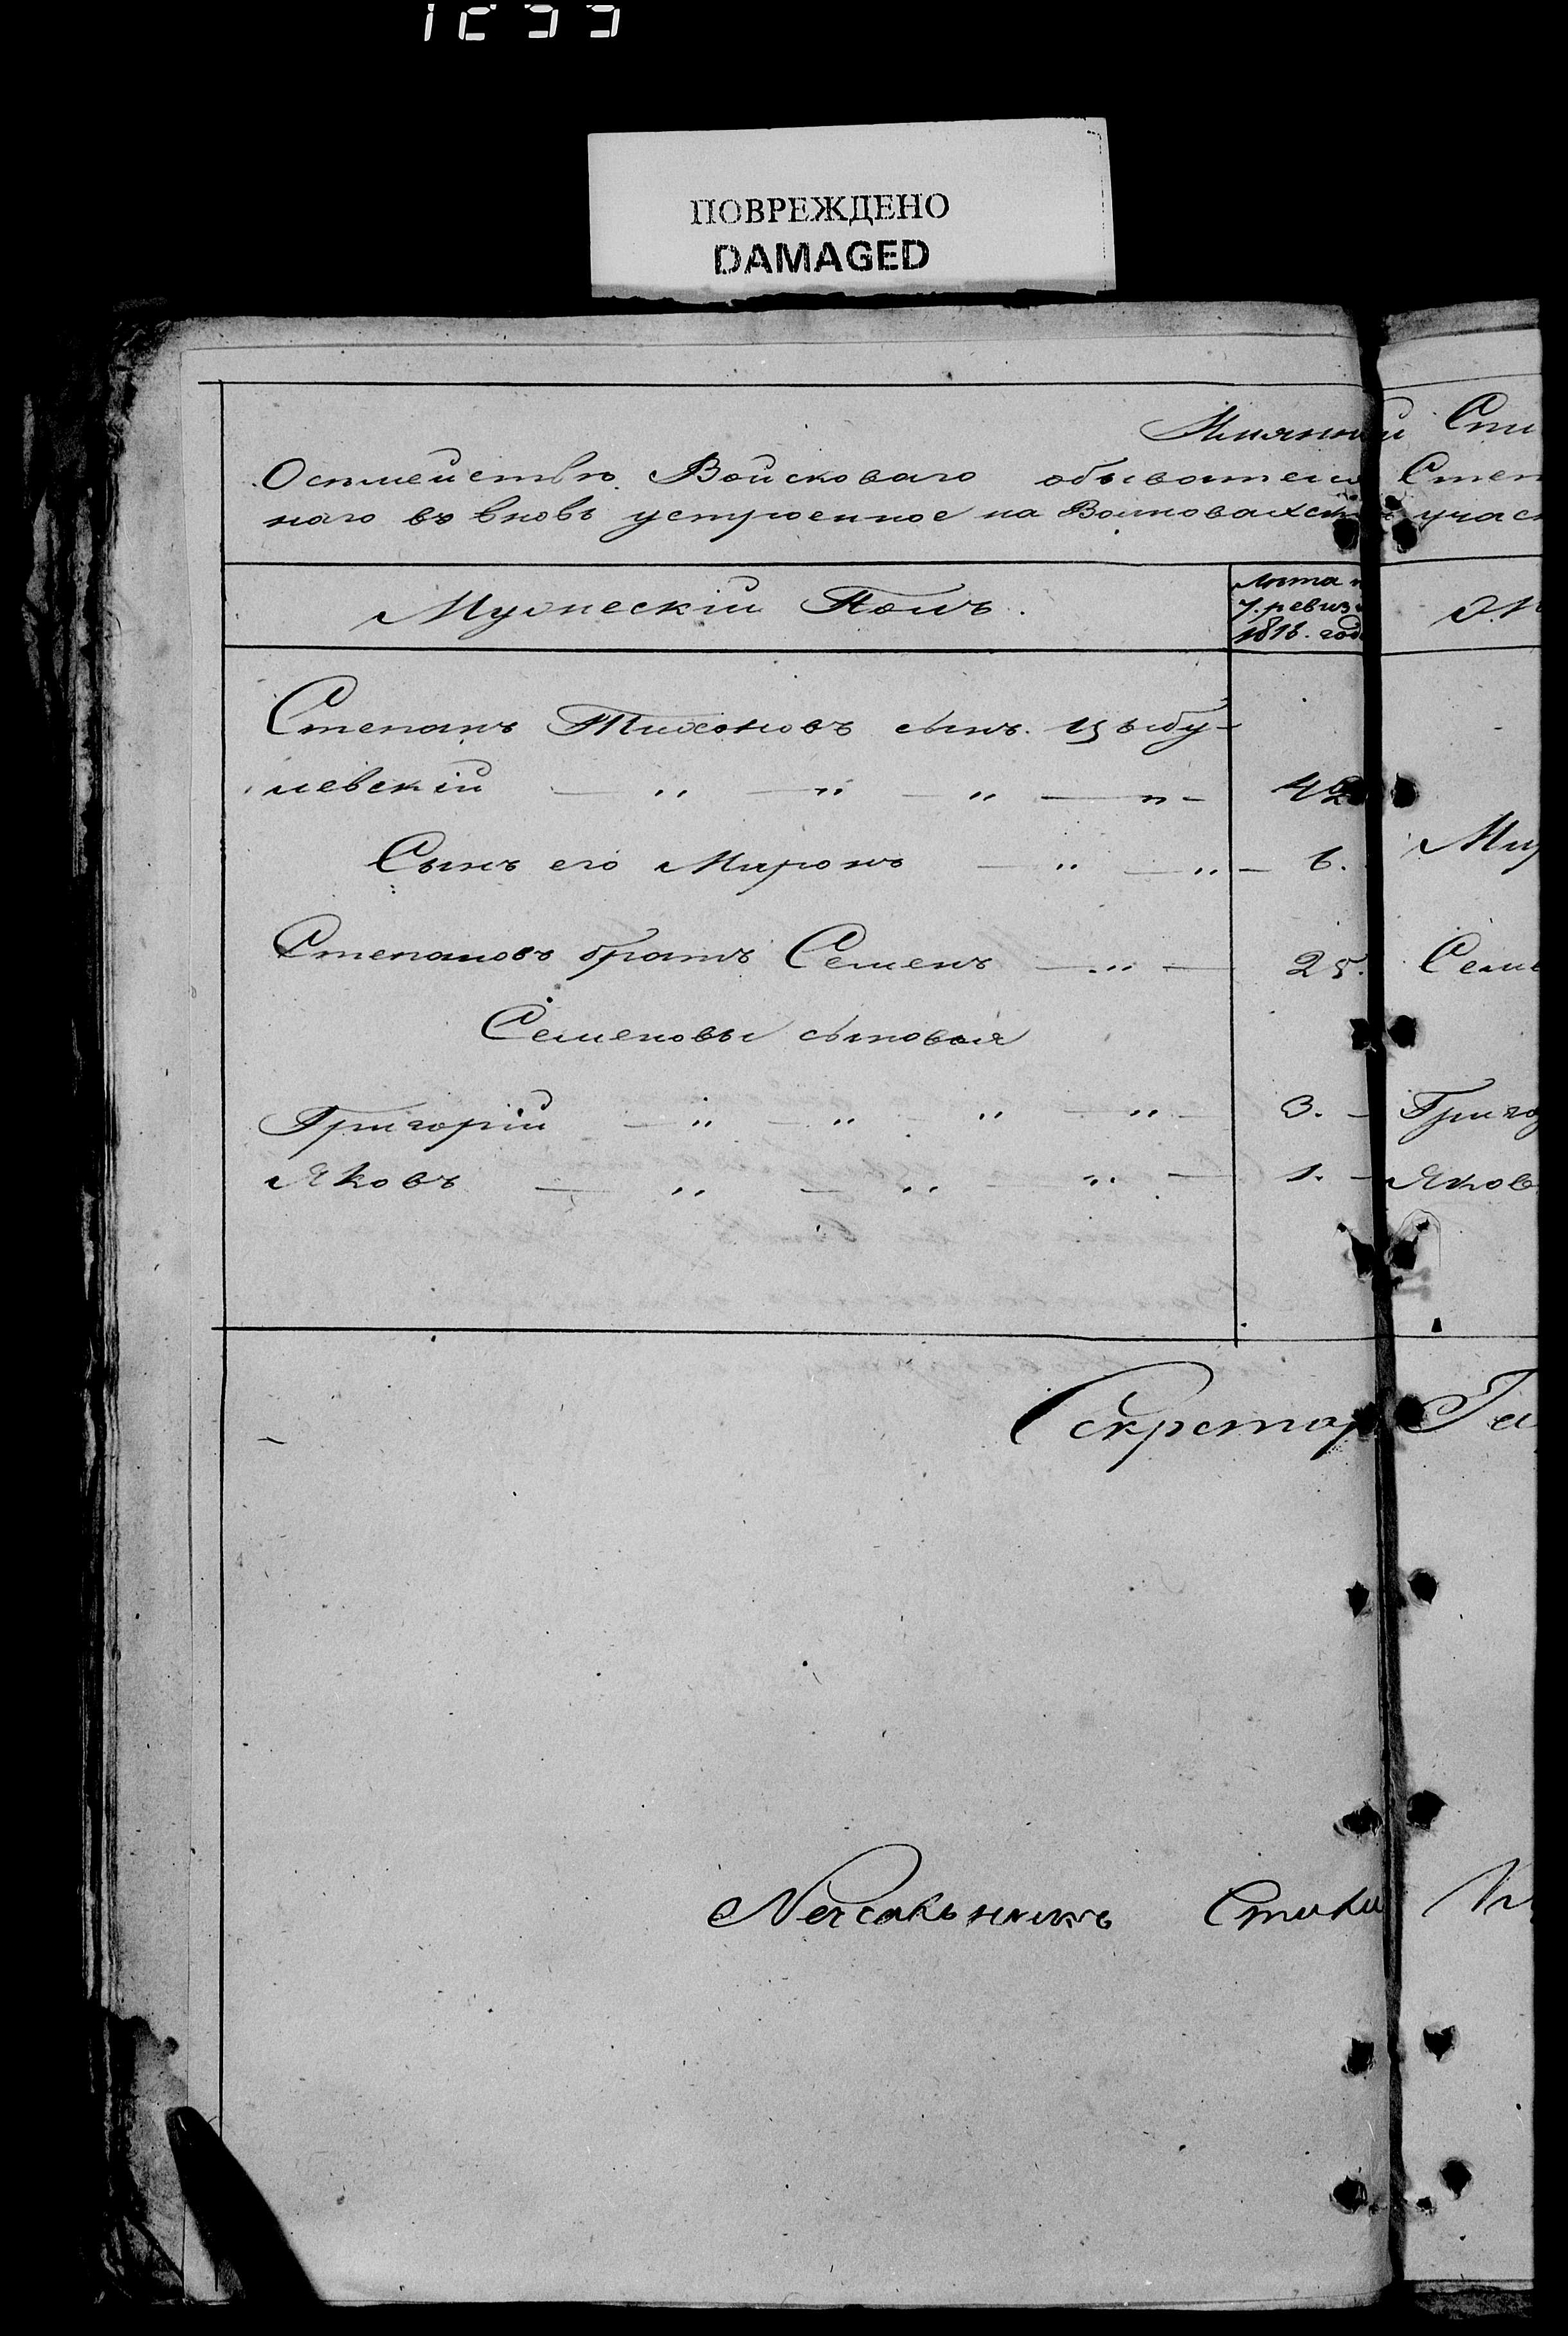 ПОВРЕЖДЕНО
DAMAGED
Имянный Спи
О семействѣ Войсковаго обывателя Степ
наго въ вновь устроенное на Волновахск учас
Мужескій Полъ.
Лѣта п
7. ревиз
1816. год
Степанъ Тихоновъ сынъ Цыбу-
левскій — " — " — " — " — 42
Сынъ его Миронъ — " — " — 6. Мир
Степановъ братъ Семенъ — " — 25. Семе
Семеновы сыновья
Григорій — " — " — " — " — 3. — Григо
Яковъ — " — " — " — 1. — Яков
Секретар
Начальникъ